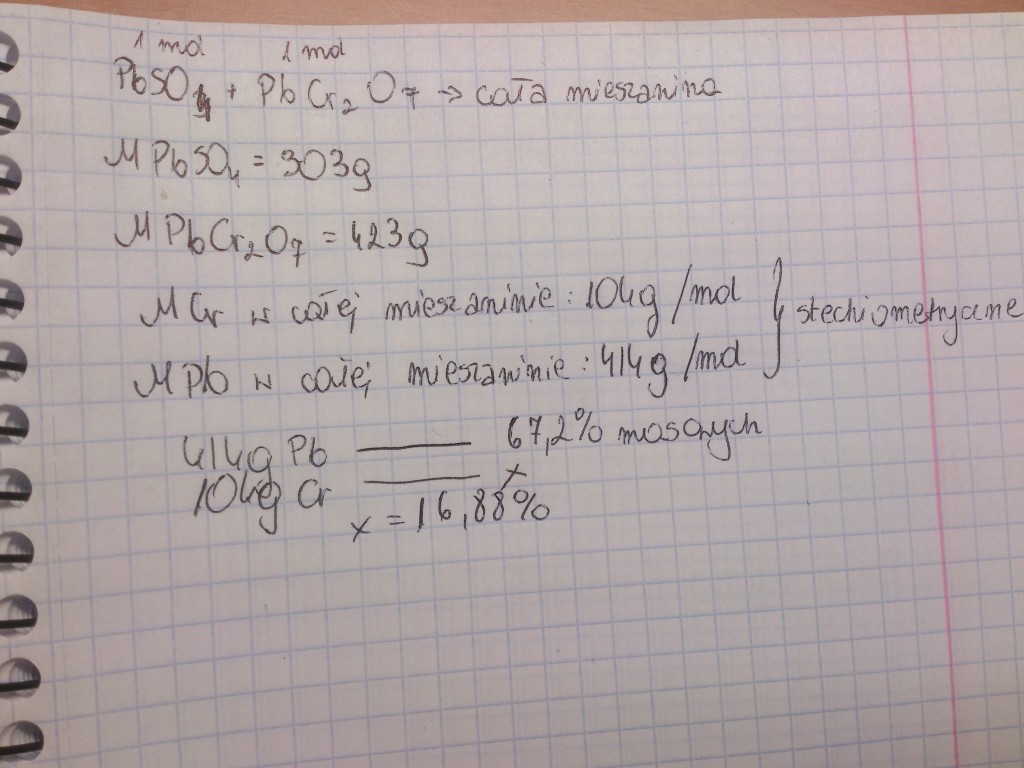 1 mol 1 mol
PbSO4 + PbCr2O7 → cała mieszanina
MPbSO4 = 303g
MPbCr2O7 = 423g
MCr w całej mieszaninie : 104g/mol } stechiometryczne
MPb w całej mieszaninie : 414g/mol
414g Pb —— 67,2% masowych
104g Cr —— x
x = 16,88%